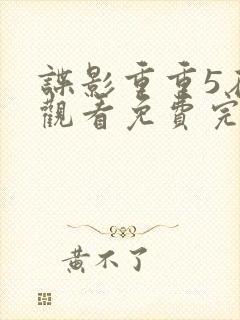 諜影重重5
觀看免費完
黃不了